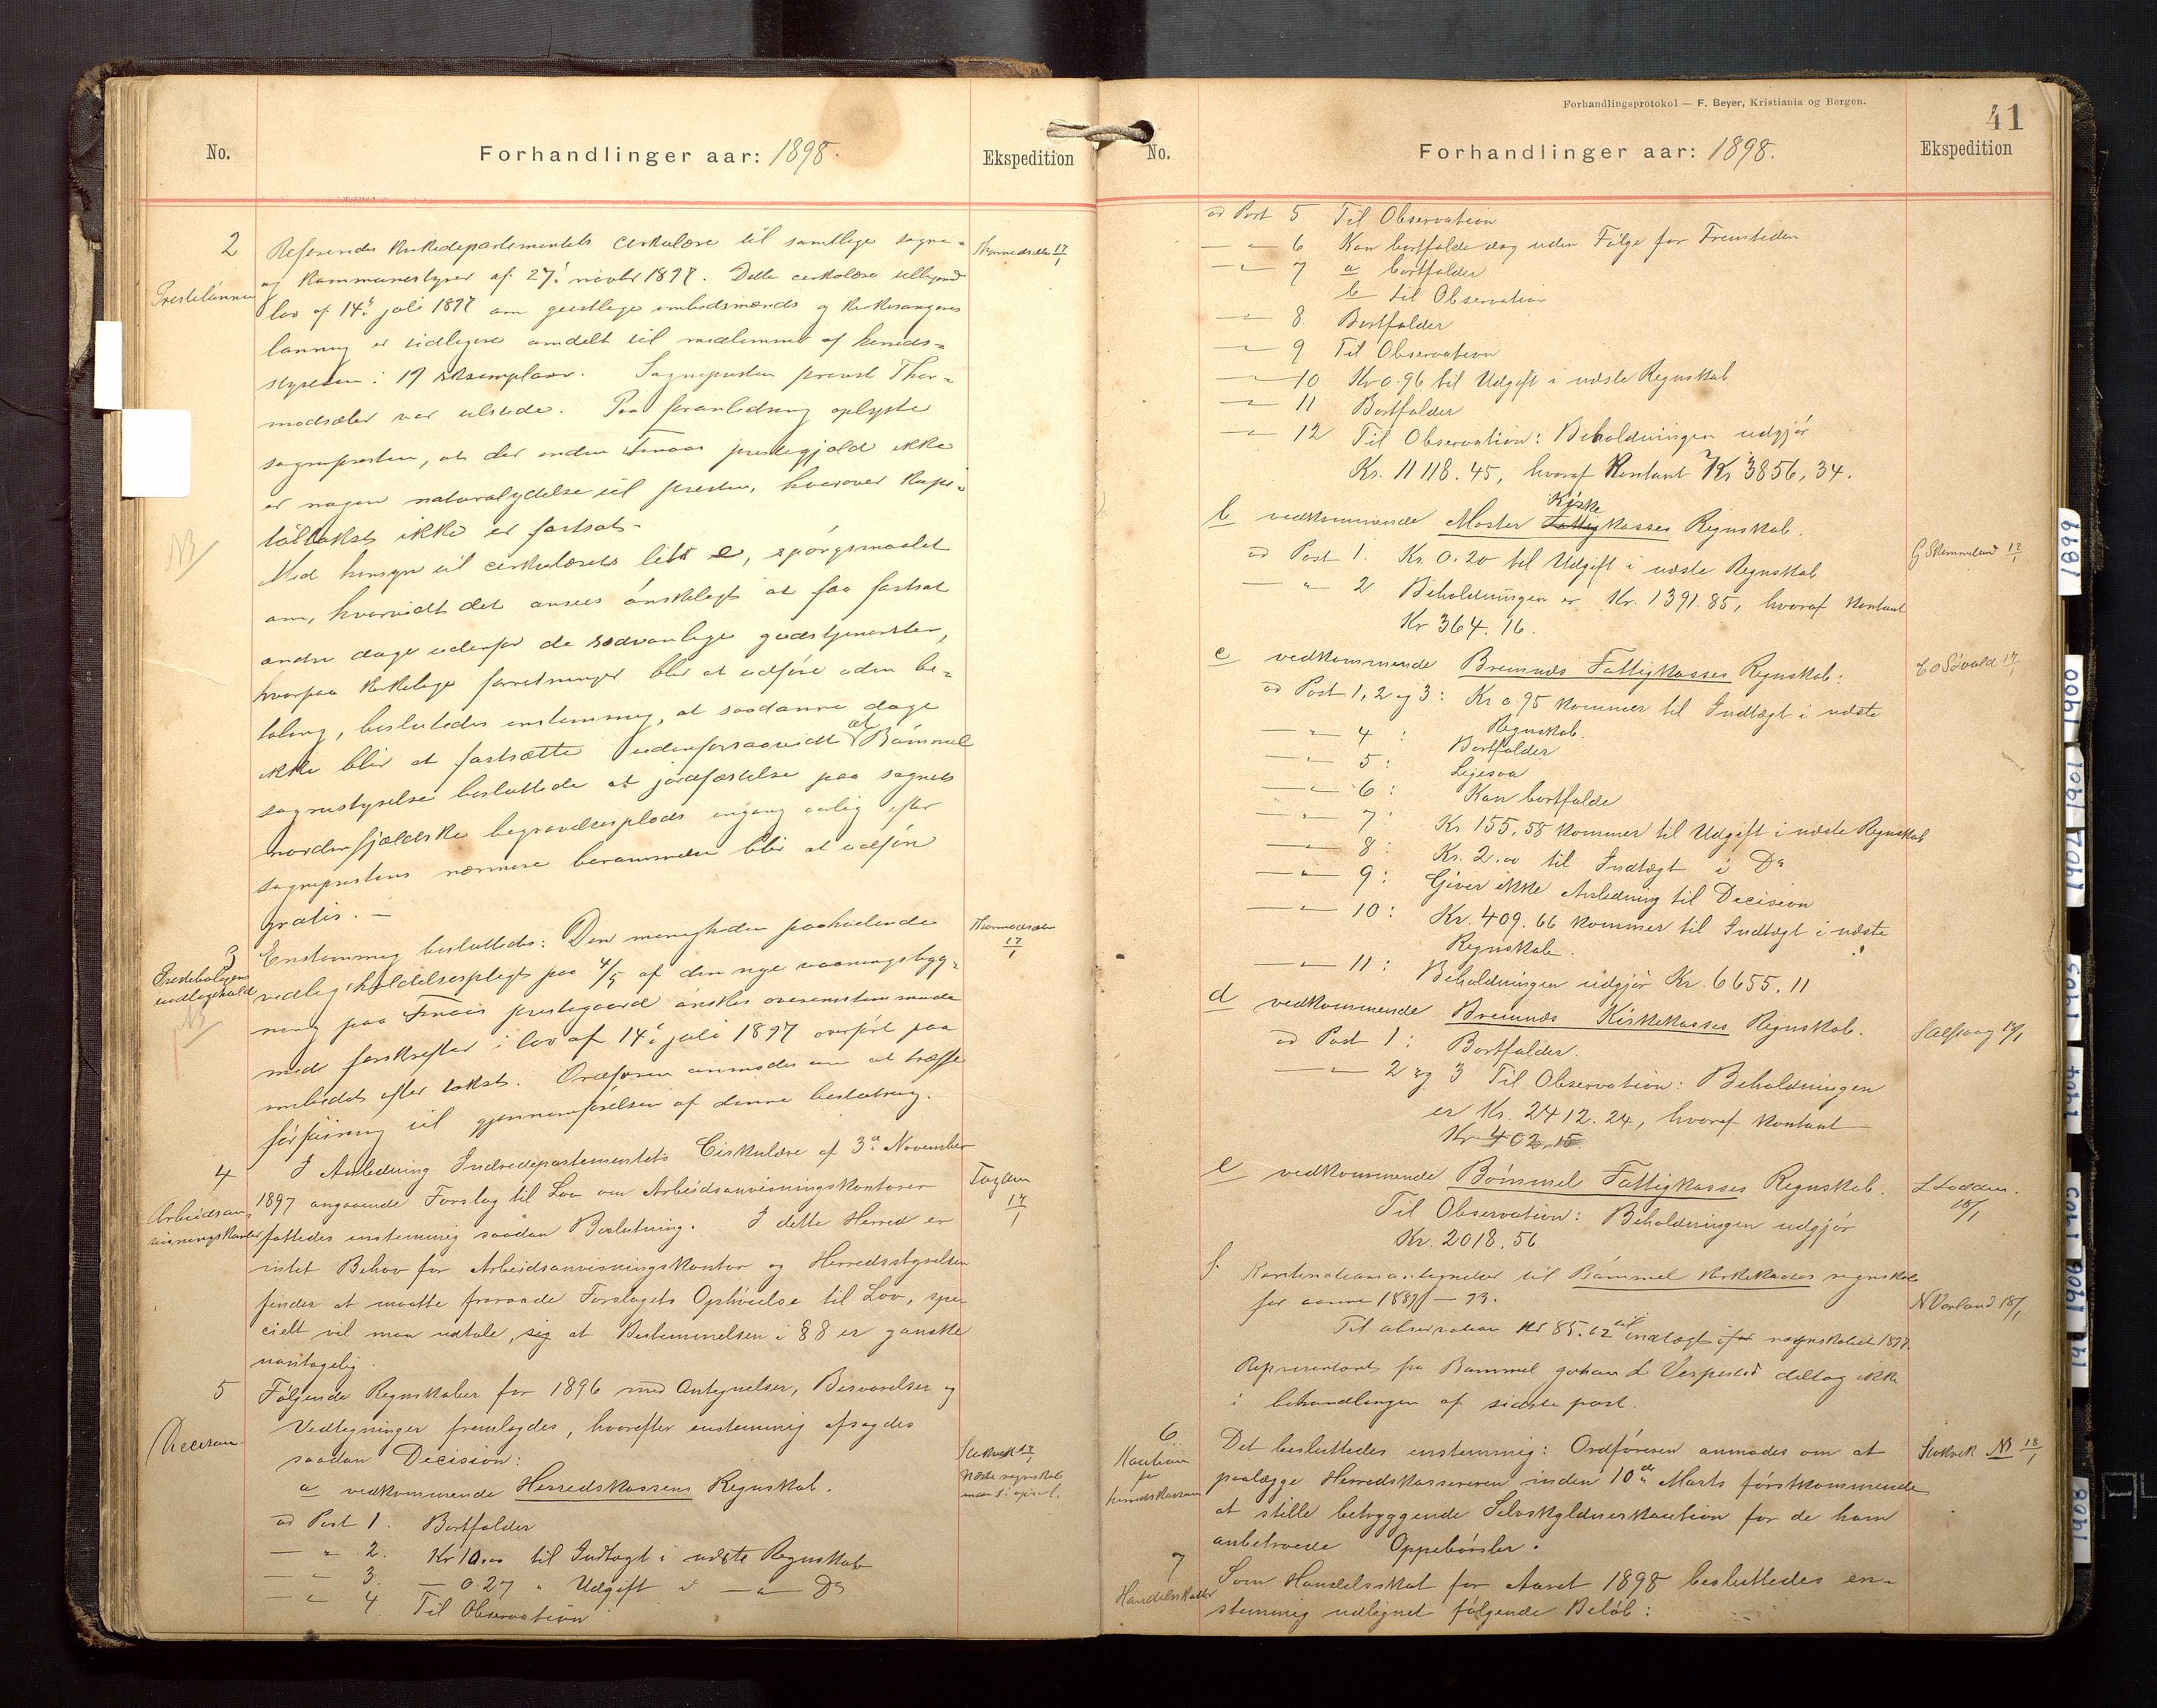 No.
Forhandlinger aar: 1898.
Ekspedition
2
Prestelønnen
Refereredes Kirkedepartementets cirkulære til samtlige sogne-
og Kommunestyrer af 27: novbr 1897. Dette cirkulære vedlagt
lov af 14: juli 1897 om geistlige embedsmænds og kirkesangeres
lønning er tidligere omdelt til medlemmer af herreds-
styrelsen i 19 eksemplarer. Sognepresten provst Thor-
modsæter var tilstede. Paa foranledning oplyste
sognepresten, at der inden Finaas prestegjeld ikke
er nogen naturalydelse til presten, hvorover kapi-
taltakst ikke er fastsat.-
Med hensyn til cirkulærets litr e, spørgsmaalet
om, hvorvidt det ansees ønskeligt at faa fastsat
andre dage udenfor de sædvanlige gudstjenester,
hvorpaa kirkelige forretninger blir at udføre uden be-
taling, besluttedes enstemmig, at saadanne dage
ikke blir at fastsætte udenforsaavidt at Bømmel
sognestyrelse besluttede at jordfæstelse paa sognets
nordenfjældske begravelsesplads engang aarlig efter
sogneprestens nærmere berammelse blir at udføre
gratis. -
NB
Thormodsæter 17/1
3
Presteboligens
vedligehold
NB
Enstemmig besluttedes: Den menigheden paahvilende
vedligeholdelsespligt paa 4/5 af den nye vaaningsbyg-
ning paa Finaas prestegaard ønskes overensstemmende
med forskrifter i lov af 14: juli 1897 overført paa
embedet efter takst. Ordføreren anmodes om at træffe
føranstaltning til gjennemførelsen af denne beslutning.
Thormodsæter
17/1
4
Arbeidsan-
visningskontor
I Anledning Indredepartementets Cirkulære af 3: November
1897 angaaende Forslag til Lov om Arbeidsanvisningskontorer
fattedes enstemmig saadan Beslutning. I dette Herred er
intet Behov for Arbeidsanvisningskontor og Herredsstyrelsen
finder at maatte fraraade Forslagets Ophøielse til Lov, spe-
cielt vil man udtale, sig at Bestemmelsen i § 8 er ganske
uantagelig.
17/1
5
Decision
Følgende Regnskaber for 1896 med Antegnelser, Besvarelser og
Vedtegninger fremlagdes, hvorefter enstemmig afsagdes
saadan Decision:
a vedkommende Herredskassens Regnskab.
ad Post 1. Bortfalder
— " 2. Kr 10.00 til Indtægt i næste Regnskab
— " 3. — 0.27 " Udgift i — " — Do
— " 4 Til Observation
Stokvik 17/1
Næste regnskab
Forhandlingsprotokol — F. Beyer, Kristiania og Bergen.
41
No.
Forhandlinger aar: 1898.
Ekspedition
ad Post 5 Til Observation
— " 6 Kan bortfalde dog uden Følge for Fremtiden
— " 7 a bortfalder
b til Observation
— " 8 Bortfalder
— " 9 Til Observation
— 10 Kr 0.96 til Udgift i næste Regnskab
— " 11 Bortfalder
— " 12 Til Observation: Beholdningen udgjør
Kr. 11118.45, hvoraf Kontant Kr 3856,34.
b vedkommende Moster Fattigkasses Kirke Regnskab.
ad Post 1. Kr. 0.20 til Udgift i næste Regnskab
— " 2 Beholdningen er Kr. 1391.85, hvoraf kontant
Kr 364.16.
17/1
c vedkommende Bremnæs Fattigkasses Regnskab:
ad Post 1, 2 og 3: Kr 0.95 kommer til Indtægt i næste
Regnskab.
— " 4 : Bortfalder
— " 5 : Ligesaa
— " 6 : Kan bortfalde
— " 7 : Kr 155.58 kommer til Udgift i næste Regnskab
— " 8 : Kr. 2.00 til Indtægt i Do
— " 9 : Giver ikke Anledning til Decision
— " 10 : Kr. 409.66 kommer til Indtægt i næste
Regnskab.
— " 11 : Beholdningen udgjør Kr. 6655.11
17/1
d vedkommende Bremnæs Kirkekasses Regnskab.
ad Post 1 : Bortfalder.
— " 2 og 3 Til Observation: Beholdningen
er Kr. 2412.24, hvoraf kontant
Kr 402.15
18/1
e vedkommende Bømmel Fattigkasses Regnskab.
Til Observation: Beholdningen udgjør
Kr. 2018.56
18/1
f. til Bømmel kirkekasses regnskab
for aarene
Til observation Kr 85.62 til indtægt i regnskabet 1897.
Repræsentant fra Bømmel Johan L Vespestad deltog ikke
i behandlingen af sidste post.
N Vorland 18/1
6
Kaution
for
herredskassereren
Det besluttedes enstemmig: Ordføreren anmodes om at
paalægge Herredskassereren inden 10de Marts førstkommende
at stille betryggende Selvskyldnerkaution for de ham
anbetroede Oppebørsler.
Stokvik NB 18/1
7
Handelsskatter
Som Handelsskat for Aaret 1898 besluttedes en-
stemmig udlignet følgende Beløb:
1899
1900
1901
1902
1903
1904
1905
1906
1908